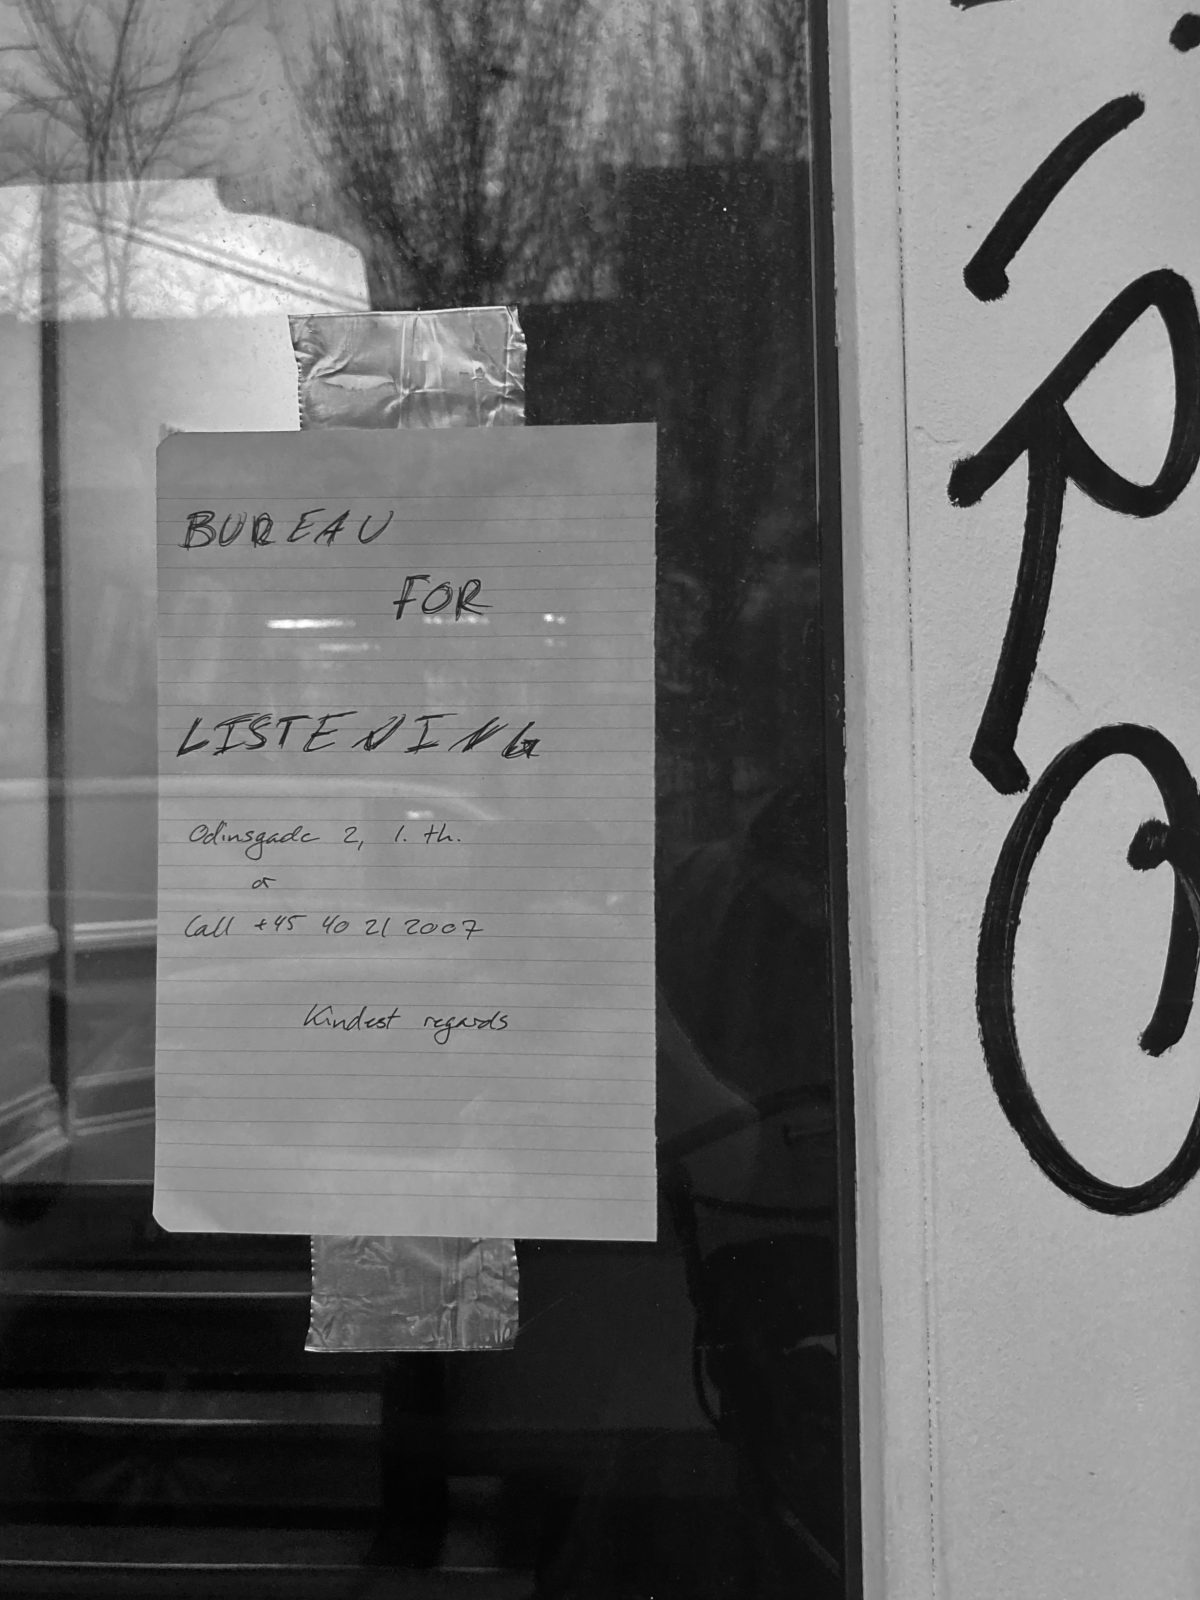 BUREAU
FOR
LISTENING
Odinsgade 2, 1. th.
or
Call +45 40 21 2007
Kindest regards